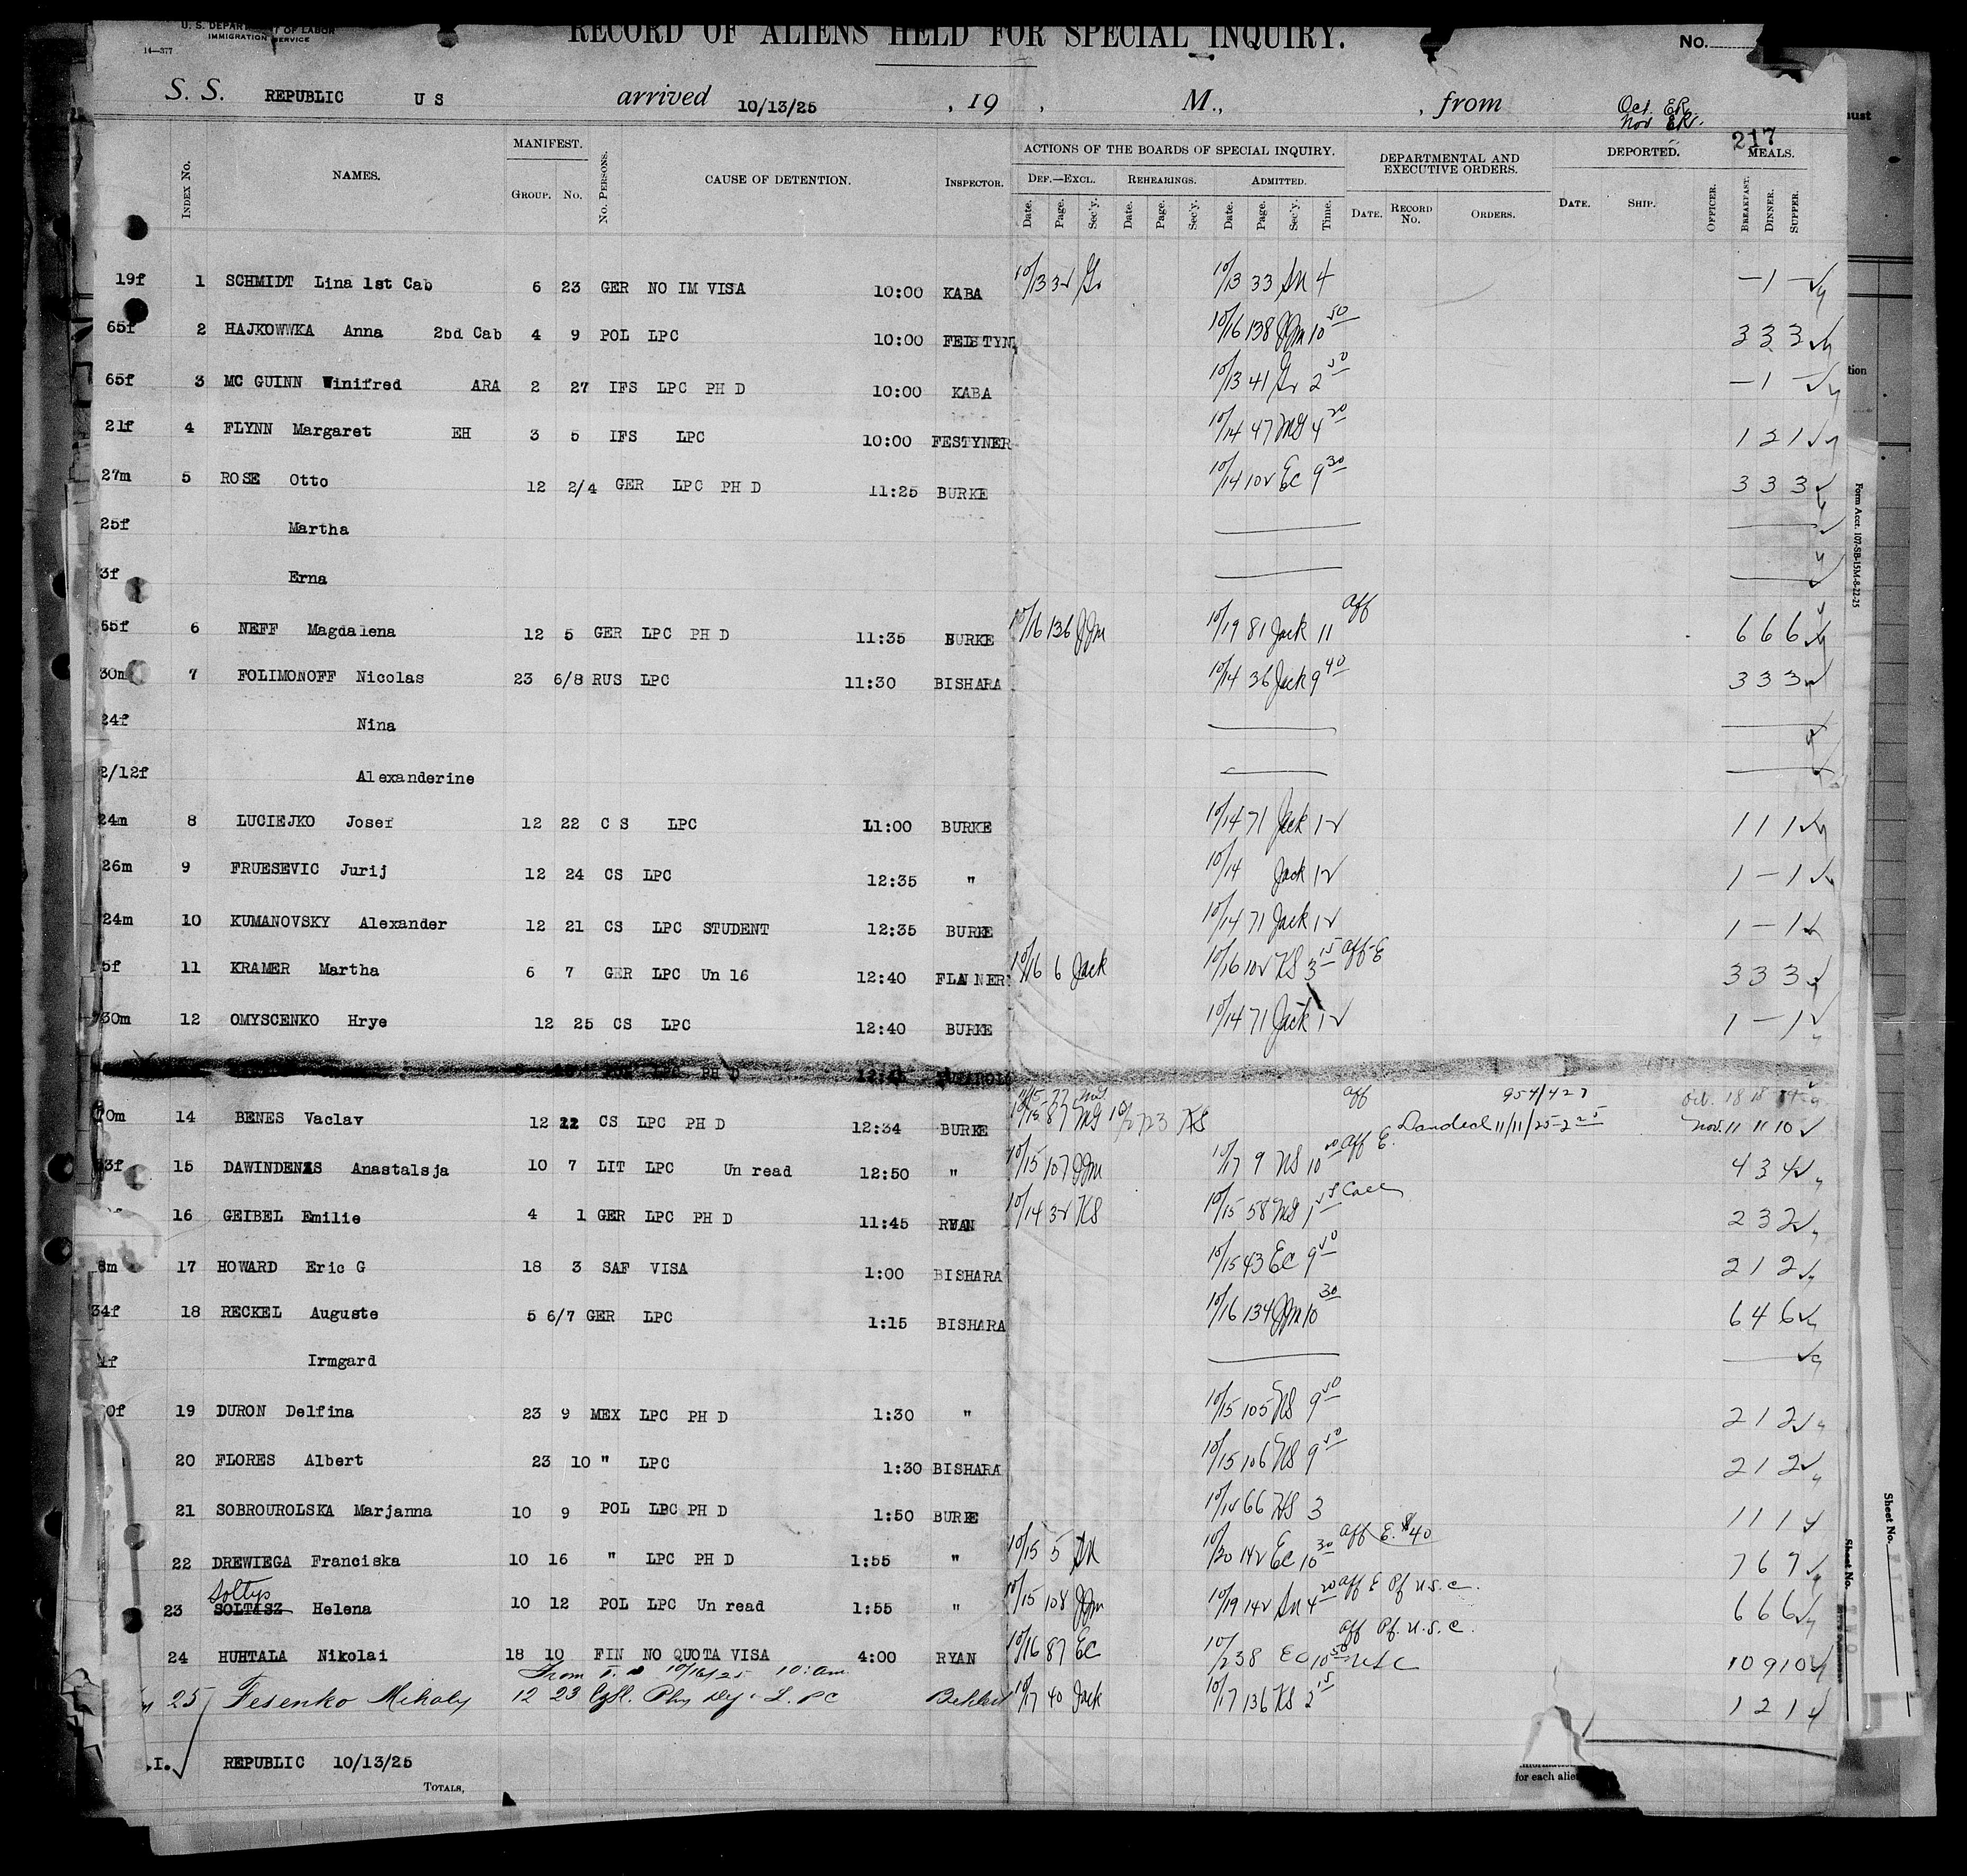 U. S. DEPARTMENT OF LABOR
IMMIGRATION SERVICE
14—377
RECORD OF ALIENS HELD FOR SPECIAL INQUIRY.
No.
S. S. REPUBLIC U S arrived 10/13/25, 19 , M., , from
Oct. ER.
Nov ER.
217
INDEX No. NAMES. MANIFEST. GROUP. No. No. PERSONS. CAUSE OF DETENTION. INSPECTOR. ACTIONS OF THE BOARDS OF SPECIAL INQUIRY. DEPARTMENTAL AND EXECUTIVE ORDERS. DEPORTED. MEALS.
DEF.—EXCL. REHEARINGS. ADMITTED.
Date. Page. Sec'y. Date. Page. Sec'y. Date. Page. Sec'y. Time. DATE. RECORD No. ORDERS. DATE. SHIP. OFFICER. BREAKFAST. DINNER. SUPPER.
19f 1 SCHMIDT Lina 1st Cab 6 23 GER NO IM VISA 10:00 KABA 10/13 10/13 33 4 — 1 —
65f 2 HAJKOWWKA Anna 2bd Cab 4 9 POL LPC 10:00 10/16 138 JJM 10 50 3 3 3
65f 3 MC GUINN Winifred ARA 2 27 IFS LPC PH D 10:00 KABA 10/13 41 2 — 1 —
21f 4 FLYNN Margaret EH 3 5 IFS LPC 10:00 FESTYNER 10/14 47 MG 4 20 1 2 1
27m 5 ROSE Otto 12 2/4 GER LPC PH D 11:25 BURKE 10/14 Ec 9 30 3 3 3
25f Martha
3f Erna
55f 6 NEFF Magdalena 12 5 GER LPC PH D 11:35 BURKE 10/16 136 JJM 10/19 81 Jack 11 aff 6 6 6
30m 7 FOLIMONOFF Nicolas 23 6/8 RUS LPC 11:30 BISHARA 10/14 36 Jack 9 40 3 3 3
24f Nina
2/12f Alexanderine
24m 8 LUCIEJKO Josef 12 22 C S LPC 11:00 BURKE 10/14 71 Jack 12 1 1 1
26m 9 FRUESEVIC Jurij 12 24 CS LPC 12:35 " 10/14 Jack 12 1 — 1
24m 10 KUMANOVSKY Alexander 12 21 CS LPC STUDENT 12:35 BURKE 10/14 71 Jack 12 1 — 1
5f 11 KRAMER Martha 6 7 GER LPC Un 16 12:40 10/16 6 Jack 10/16 102 KS 3 15 aff-E 3 3 3
30m 12 OMYSCENKO Hrye 12 25 CS LPC 12:40 BURKE 10/14 71 Jack 12 1 — 1
POL LPC PH D
70m 14 BENES Vaclav 12 22 CS LPC PH D 12:34 BURKE 10/15 87 MG KS aff 954/427 Landed 11/11/25 Oct. 18 18 Nov. 11 11 10
15 DAWINDENIS Anastalsja 10 7 LIT LPC Un read 12:50 " 10/15 107 JJM 10/17 9 NS 10 aff E. 4 3 4
16 GEIBEL Emilie 4 1 GER LPC PH D 11:45 RYAN 10/14 32 KS 10/15 58 MG 1 2 3 2
8m 17 HOWARD Eric G 18 3 SAF VISA 1:00 BISHARA 10/15 43 EC 9 50 2 1 2
34f 18 RECKEL Auguste 5 6/7 GER LPC 1:15 BISHARA 10/16 134 JJM 10 30 6 4 6
Irmgard
0f 19 DURON Delfina 23 9 MEX LPC PH D 1:30 " 10/15 105 NS 9 50 2 1 2
20 FLORES Albert 23 10 " LPC 1:30 BISHARA 10/15 106 NS 9 50 2 1 2
21 SOBROUROLSKA Marjanna 10 9 POL LPC PH D 1:50 BURKE 66 3 1 1 1
22 DREWIEGA Franciska 10 16 " LPC PH D 1:55 " 10/15 5 10/20 142 Ec 10 30 aff E. $40 7 6 7
Soltys
23 SOLTISZ Helena 10 12 POL LPC Un read 1:55 " 10/15 108 JJM 10/19 142 4 20 aff E Pf U.S.C. 6 6 6
24 HUHTALA Nikolai 18 10 FIN NO QUOTA VISA 4:00 RYAN 10/16 87 EC EC 10 aff Pf. U.S.C. 10 9 10
From 10/16/25 10:am
25 Fesenko Mihaly 12 23 Phy Def. L.P.C 10/17 40 Jack 10/17 136 KS 2 15 1 2 1
.I. REPUBLIC 10/13/25
TOTALS,
for each alien
Form Acct. 107-SB-15M-8-22-25
Sheet No.
Sheet No.